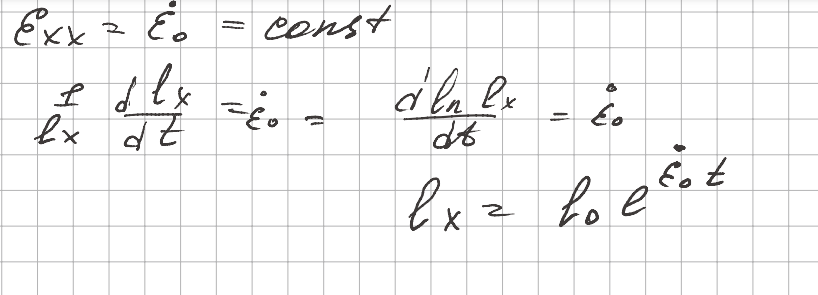 Ɛxx = ε̇₀ = const
1/lx d lx/dt = ε̇₀ = d ln lx/dt = ε̇₀
lx = l₀ e^ε̇₀ t